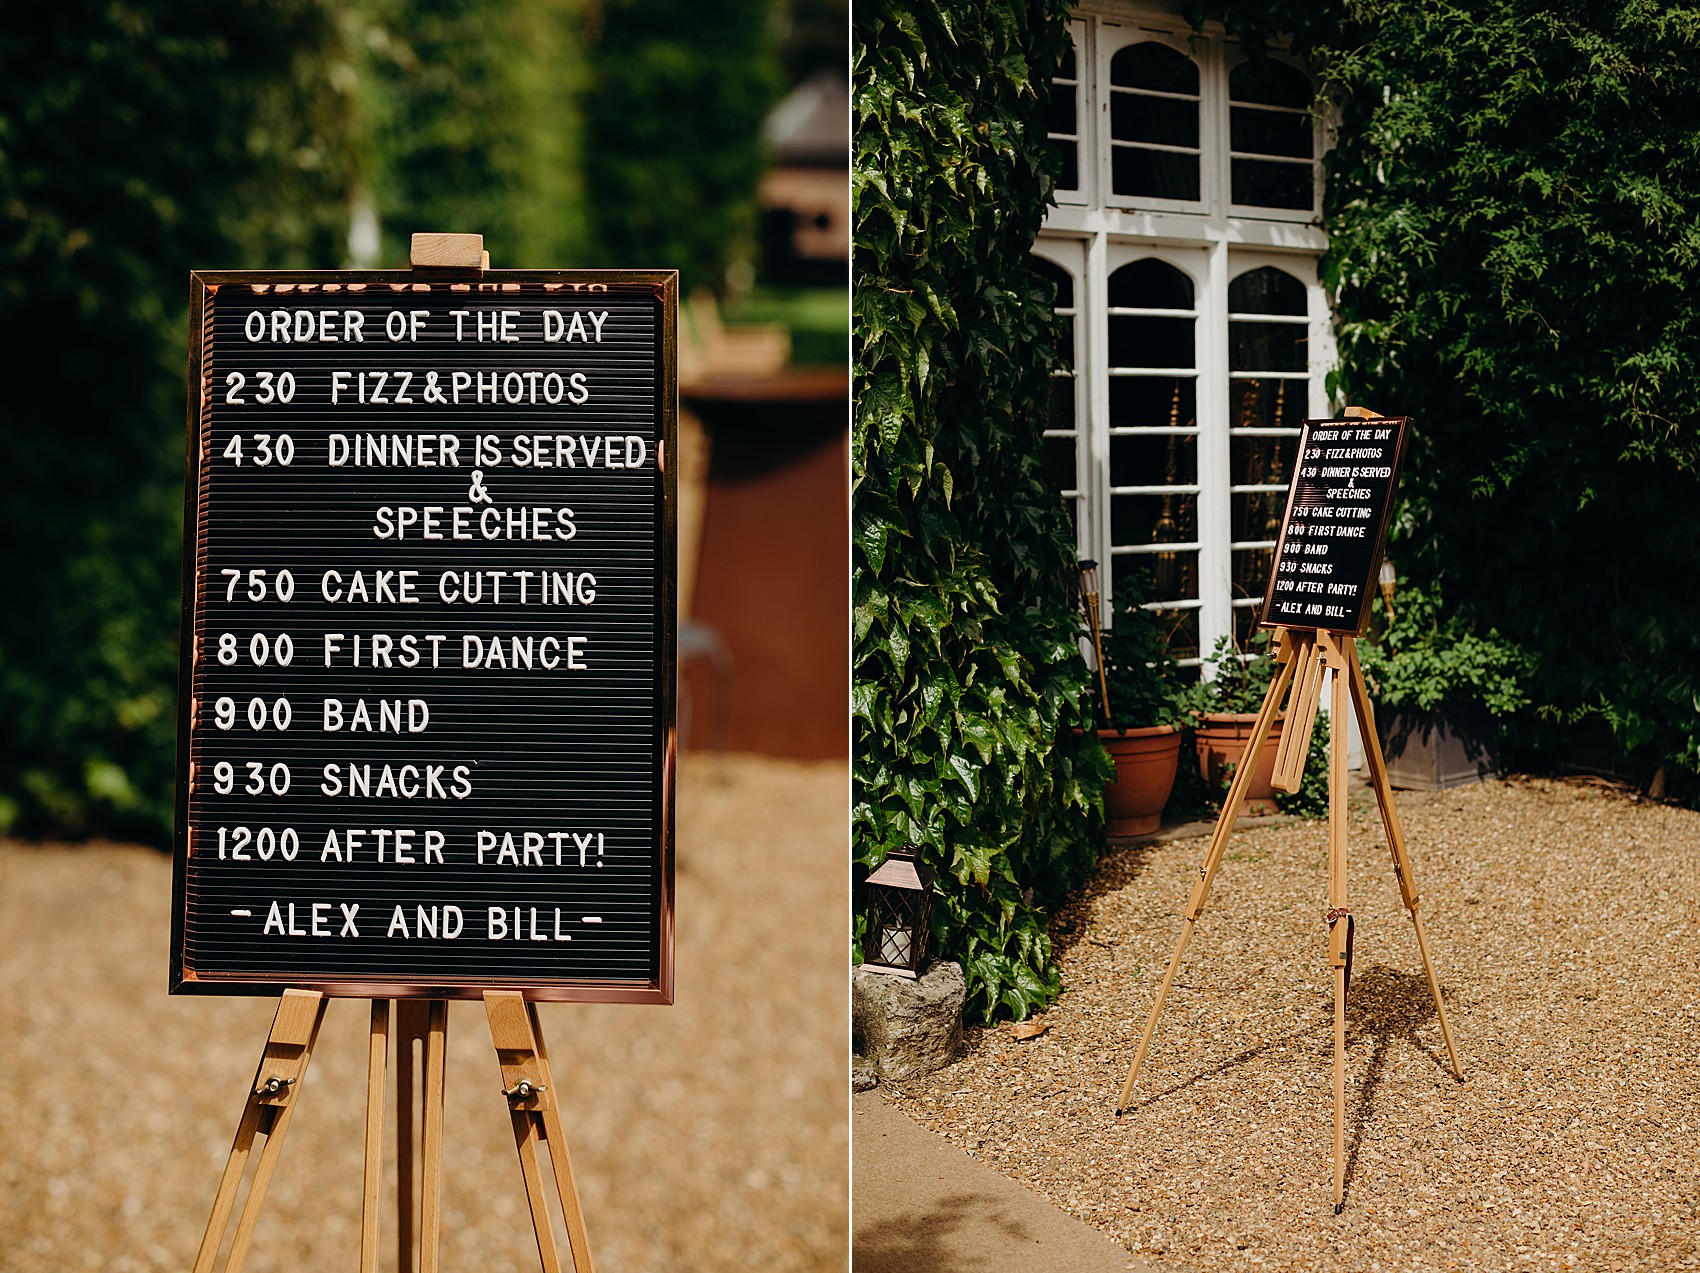 ORDER OF THE DAY
230 FIZZ&PHOTOS
430 DINNER IS SERVED
&
SPEECHES
750 CAKE CUTTING
800 FIRST DANCE
900 BAND
930 SNACKS
1200 AFTER PARTY!
-ALEX AND BILL-
ORDER OF THE DAY
230 FIZZ&PHOTOS
430 DINNER IS SERVED
&
SPEECHES
750 CAKE CUTTING
800 FIRST DANCE
900 BAND
930 SNACKS
1200 AFTER PARTY!
-ALEX AND BILL-